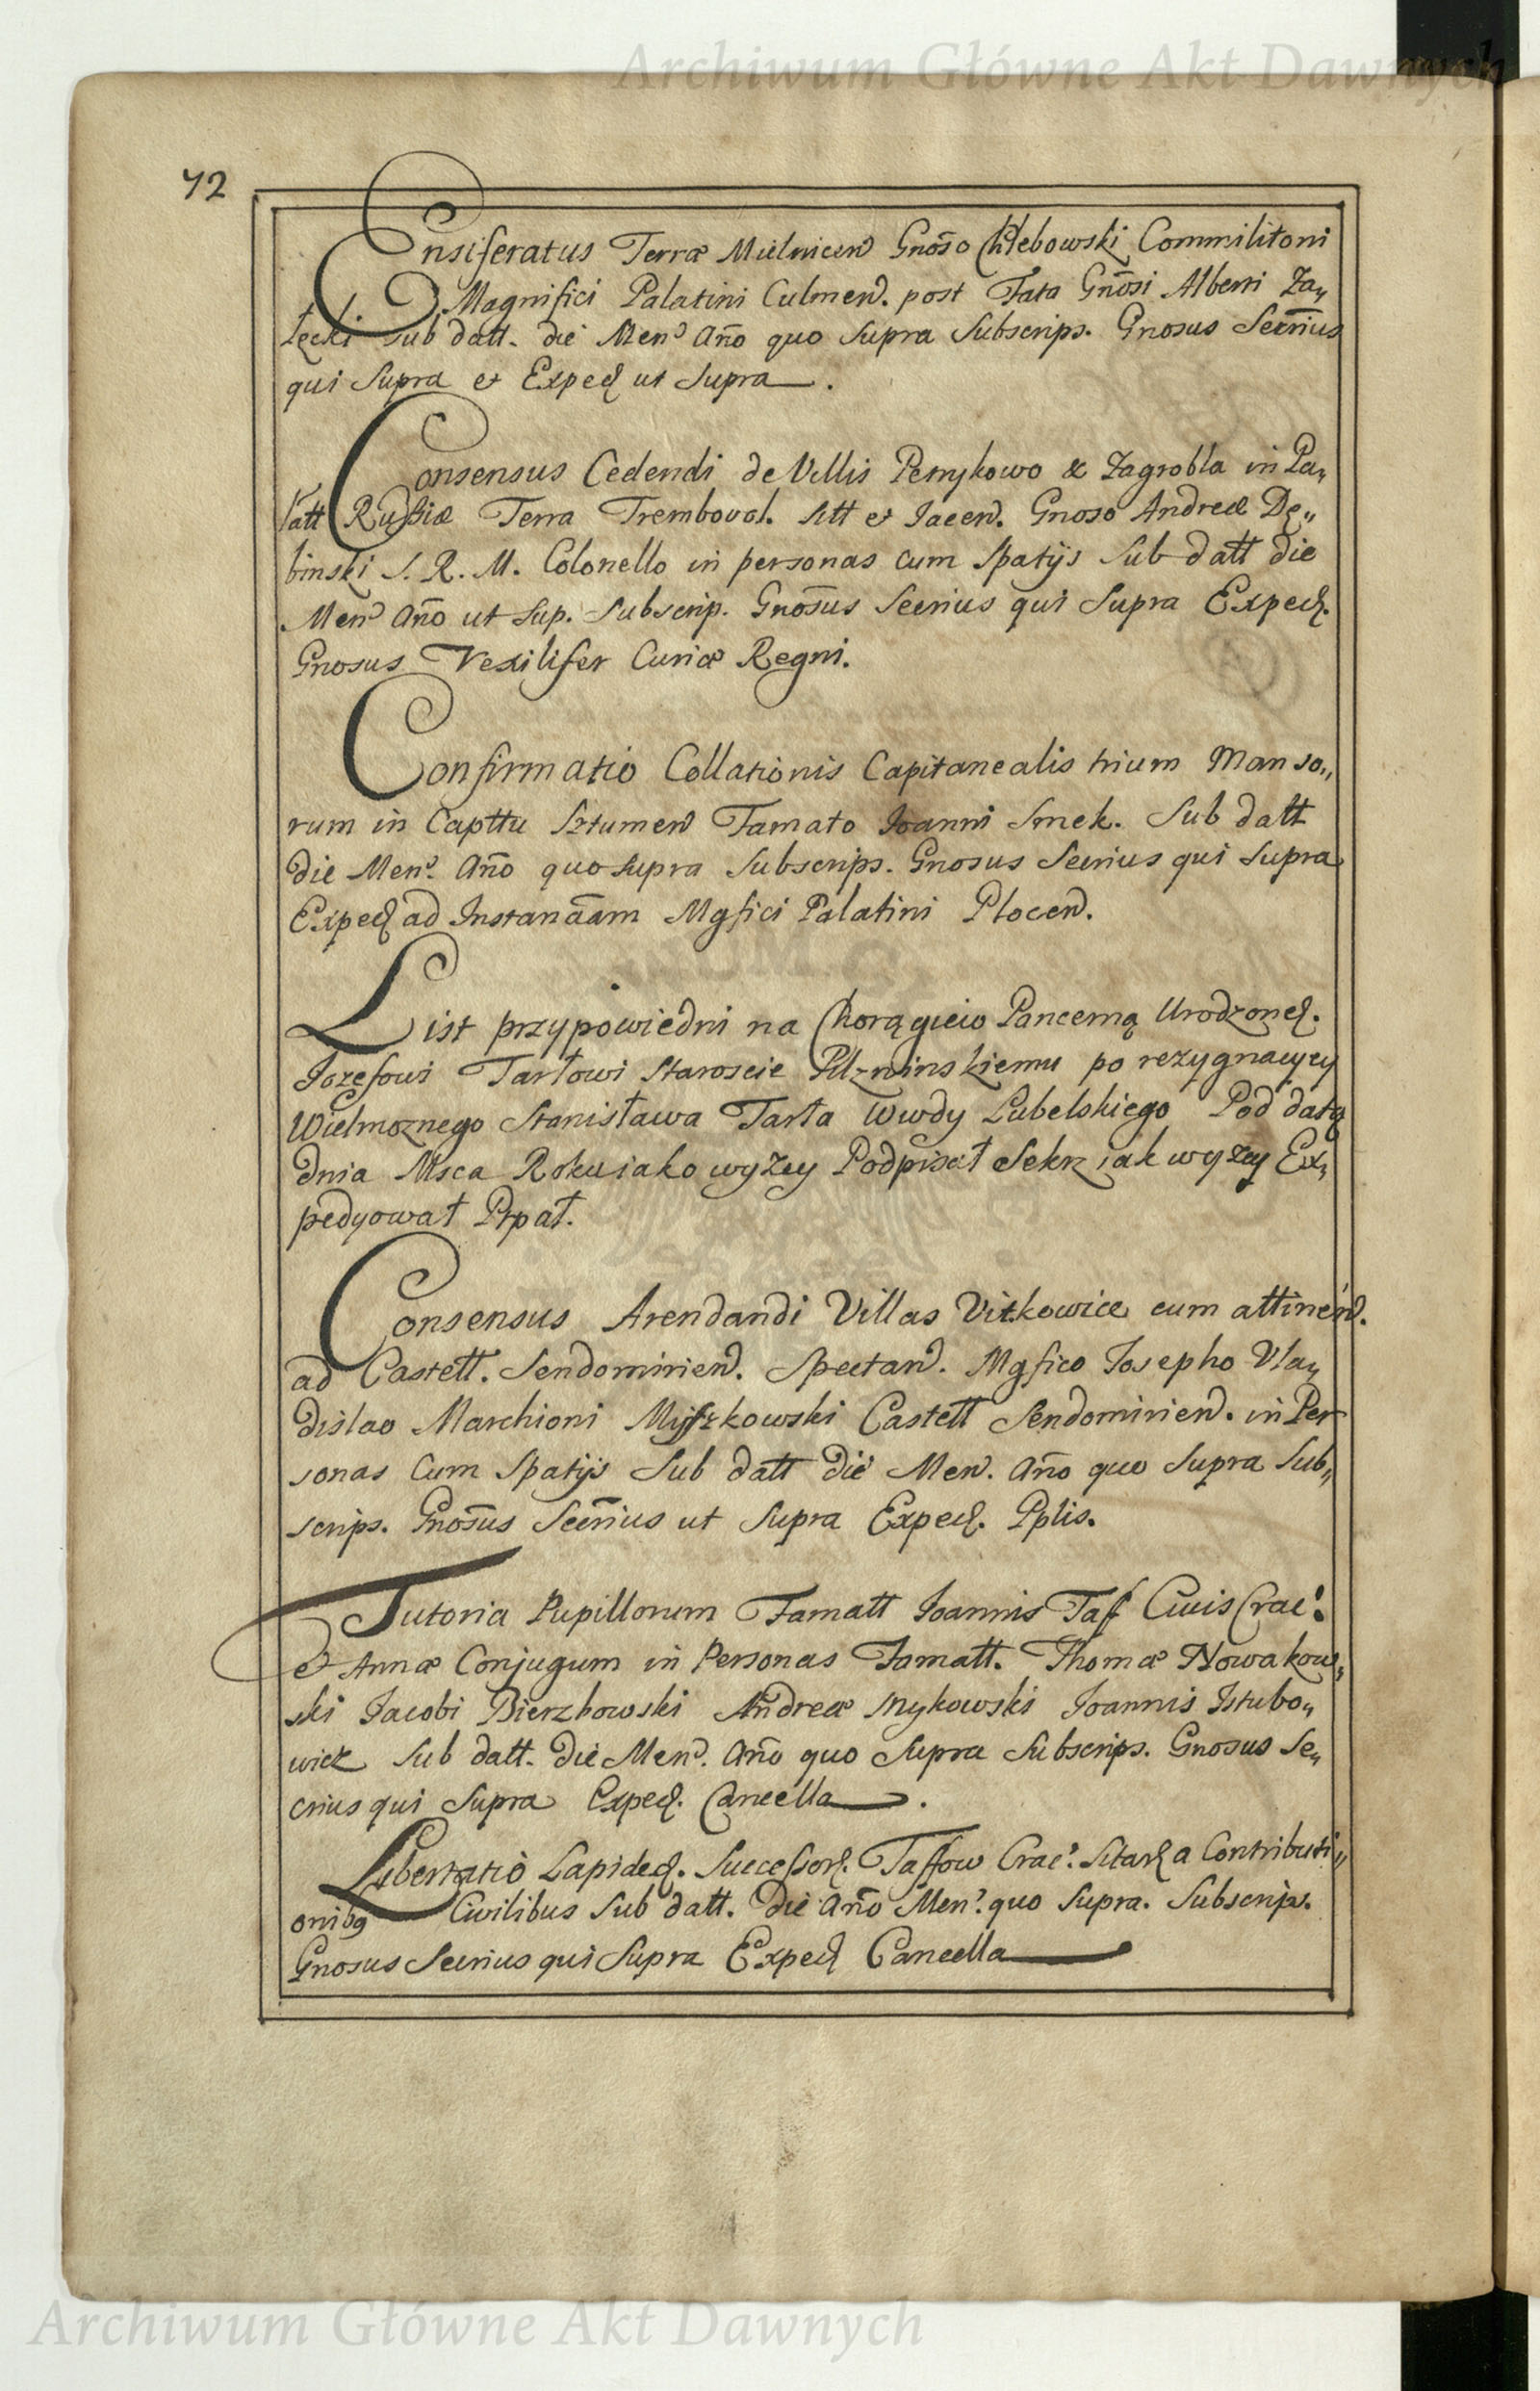 Archiwum Główne Akt Dawnych
72
Ensiferatus Terræ Mielnicen Gnoso Chlebowski Commilitoni
Magnifici Palatini Culmen. post Fata Gnosi Alberti Za„
łęcki sub datt. die Men Año quo Supra Subscrips. Gnosus Secrius
qui Supra et Exped ut Supra.
Consensus Cedendi de Villis Petrykowo & Zagrobla in Pa„
latt Russiæ Terra Trembovol. Sitt et Jacen. Gnoso Andreæ Dę„
binski S. R. M. Colonello in personas cum Spatijs Sub datt die
Men Año ut Sup. Subscrip. Gnosus Secrius qui Supra Exped.
Gnosus Vexilifer Curiæ Regni.
Confirmatio Collationis Capitanealis trium Manso„
rum in Capttu Sztumen Famato Joanni Smek. Sub datt
die Men. Año quo supra Subscrips. Gnosus Secrius qui Supra
Exped ad Instanãam Mgfici Palatini Plocen.
List przypowiedni na Chorągiew Pancerną Urodzone.
Jozefowi Tarłowi Staroscie Pilzninskiemu po rezygnacyey
Wielmoznego Stanisława Tarła Wwdy Lubelskiego Pod datą
dnia Msca Roku iako wyzey Podpisał Sekrz iak wyzey Ex„
pedyował Ptpał.
Consensus Arendandi Villas Vitkowice cum attinen.
ad Castell. Sendomirien. Spectan. Mgfico Josepho Vla„
dislao Marchioni Myszkowski Castell Sendomirien. in Per
sonas Cum Spatijs Sub datt die Men. Año quo Supra Sub„
scrips. Gnosus Secrius ut Supra Exped. Pplis.
Tutoria Pupillorum Famatt Joannis Taff Civis Crac.
et Annæ Conjugum in Personas Famatt. Thomæ Nowakow„
ski Jacobi Bierzhowski Andreæ Mykowski Joannis Istubo„
wicz Sub datt. Die Men. Año quo Supra Subscrips. Gnosus Se„
crius qui Supra Exped. Cancella.
Libertatio Lapided. Successor. Taffow Crac. Sitar a Contributi„
onibq Civilibus Sub datt. Die Año Men. quo Supra. Subscrips.
Gnosus Secrius qui Supra Exped Cancella
Archiwum Główne Akt Dawnych